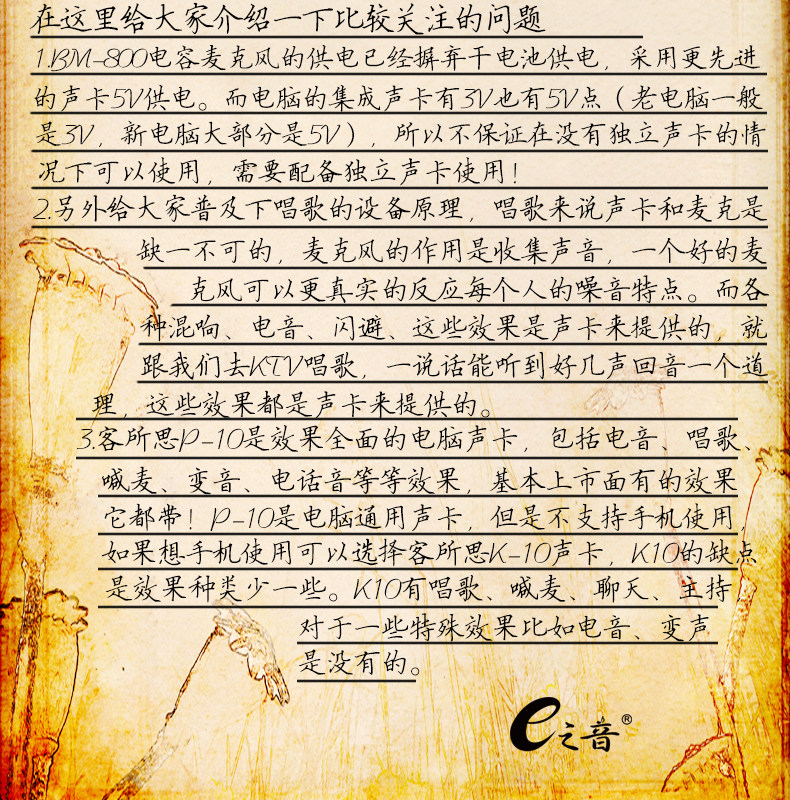 在这里给大家介绍一下比较关注的问题
1.BM-800电容麦克风的供电已经摒弃干电池供电，采用更先进
的声卡5V供电。而电脑的集成声卡有3V也有5V点（老电脑一般
是3V，新电脑大部分是5V），所以不保证在没有独立声卡的情
况下可以使用，需要配备独立声卡使用！
2.另外给大家普及下唱歌的设备原理，唱歌来说声卡和麦克是
缺一不可的，麦克风的作用是收集声音，一个好的麦
克风可以更真实的反应每个人的噪音特点。而各
种混响、电音、闪避、这些效果是声卡来提供的，就
跟我们去KTV唱歌，一说话能听到好几声回音一个道
理，这些效果都是声卡来提供的。
3.客所思P-10是效果全面的电脑声卡，包括电音、唱歌、
喊麦、变音、电话音等等效果，基本上市面有的效果
它都带！P-10是电脑通用声卡，但是不支持手机使用，
如果想手机使用可以选择客所思K-10声卡，K10的缺点
是效果种类少一些。K10有唱歌、喊麦、聊天、主持
对于一些特殊效果比如电音、变声
是没有的。
e之音®